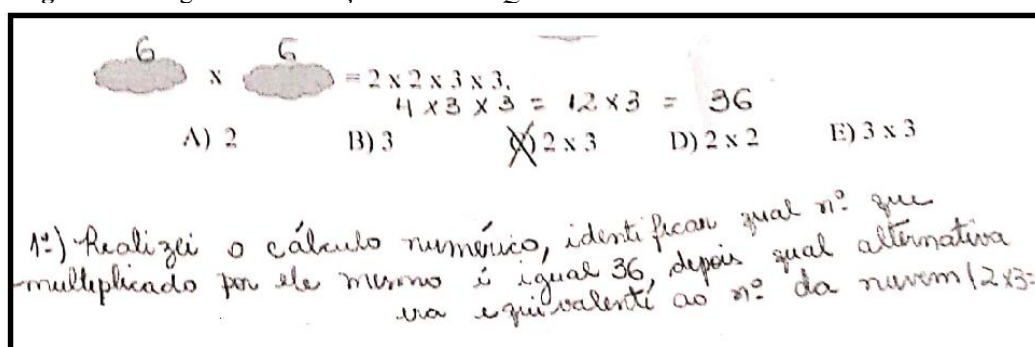 6 6
x = 2 x 2 x 3 x 3.
4 x 3 x 3 = 12 x 3 = 36
A) 2 B) 3 C) 2 x 3 D) 2 x 2 E) 3 x 3
1º) Realizei o cálculo numérico, identificar qual nº que
multiplicado por ele mesmo é igual 36, depois qual alternativa
era equivalente ao nº da nuvem (2x3=